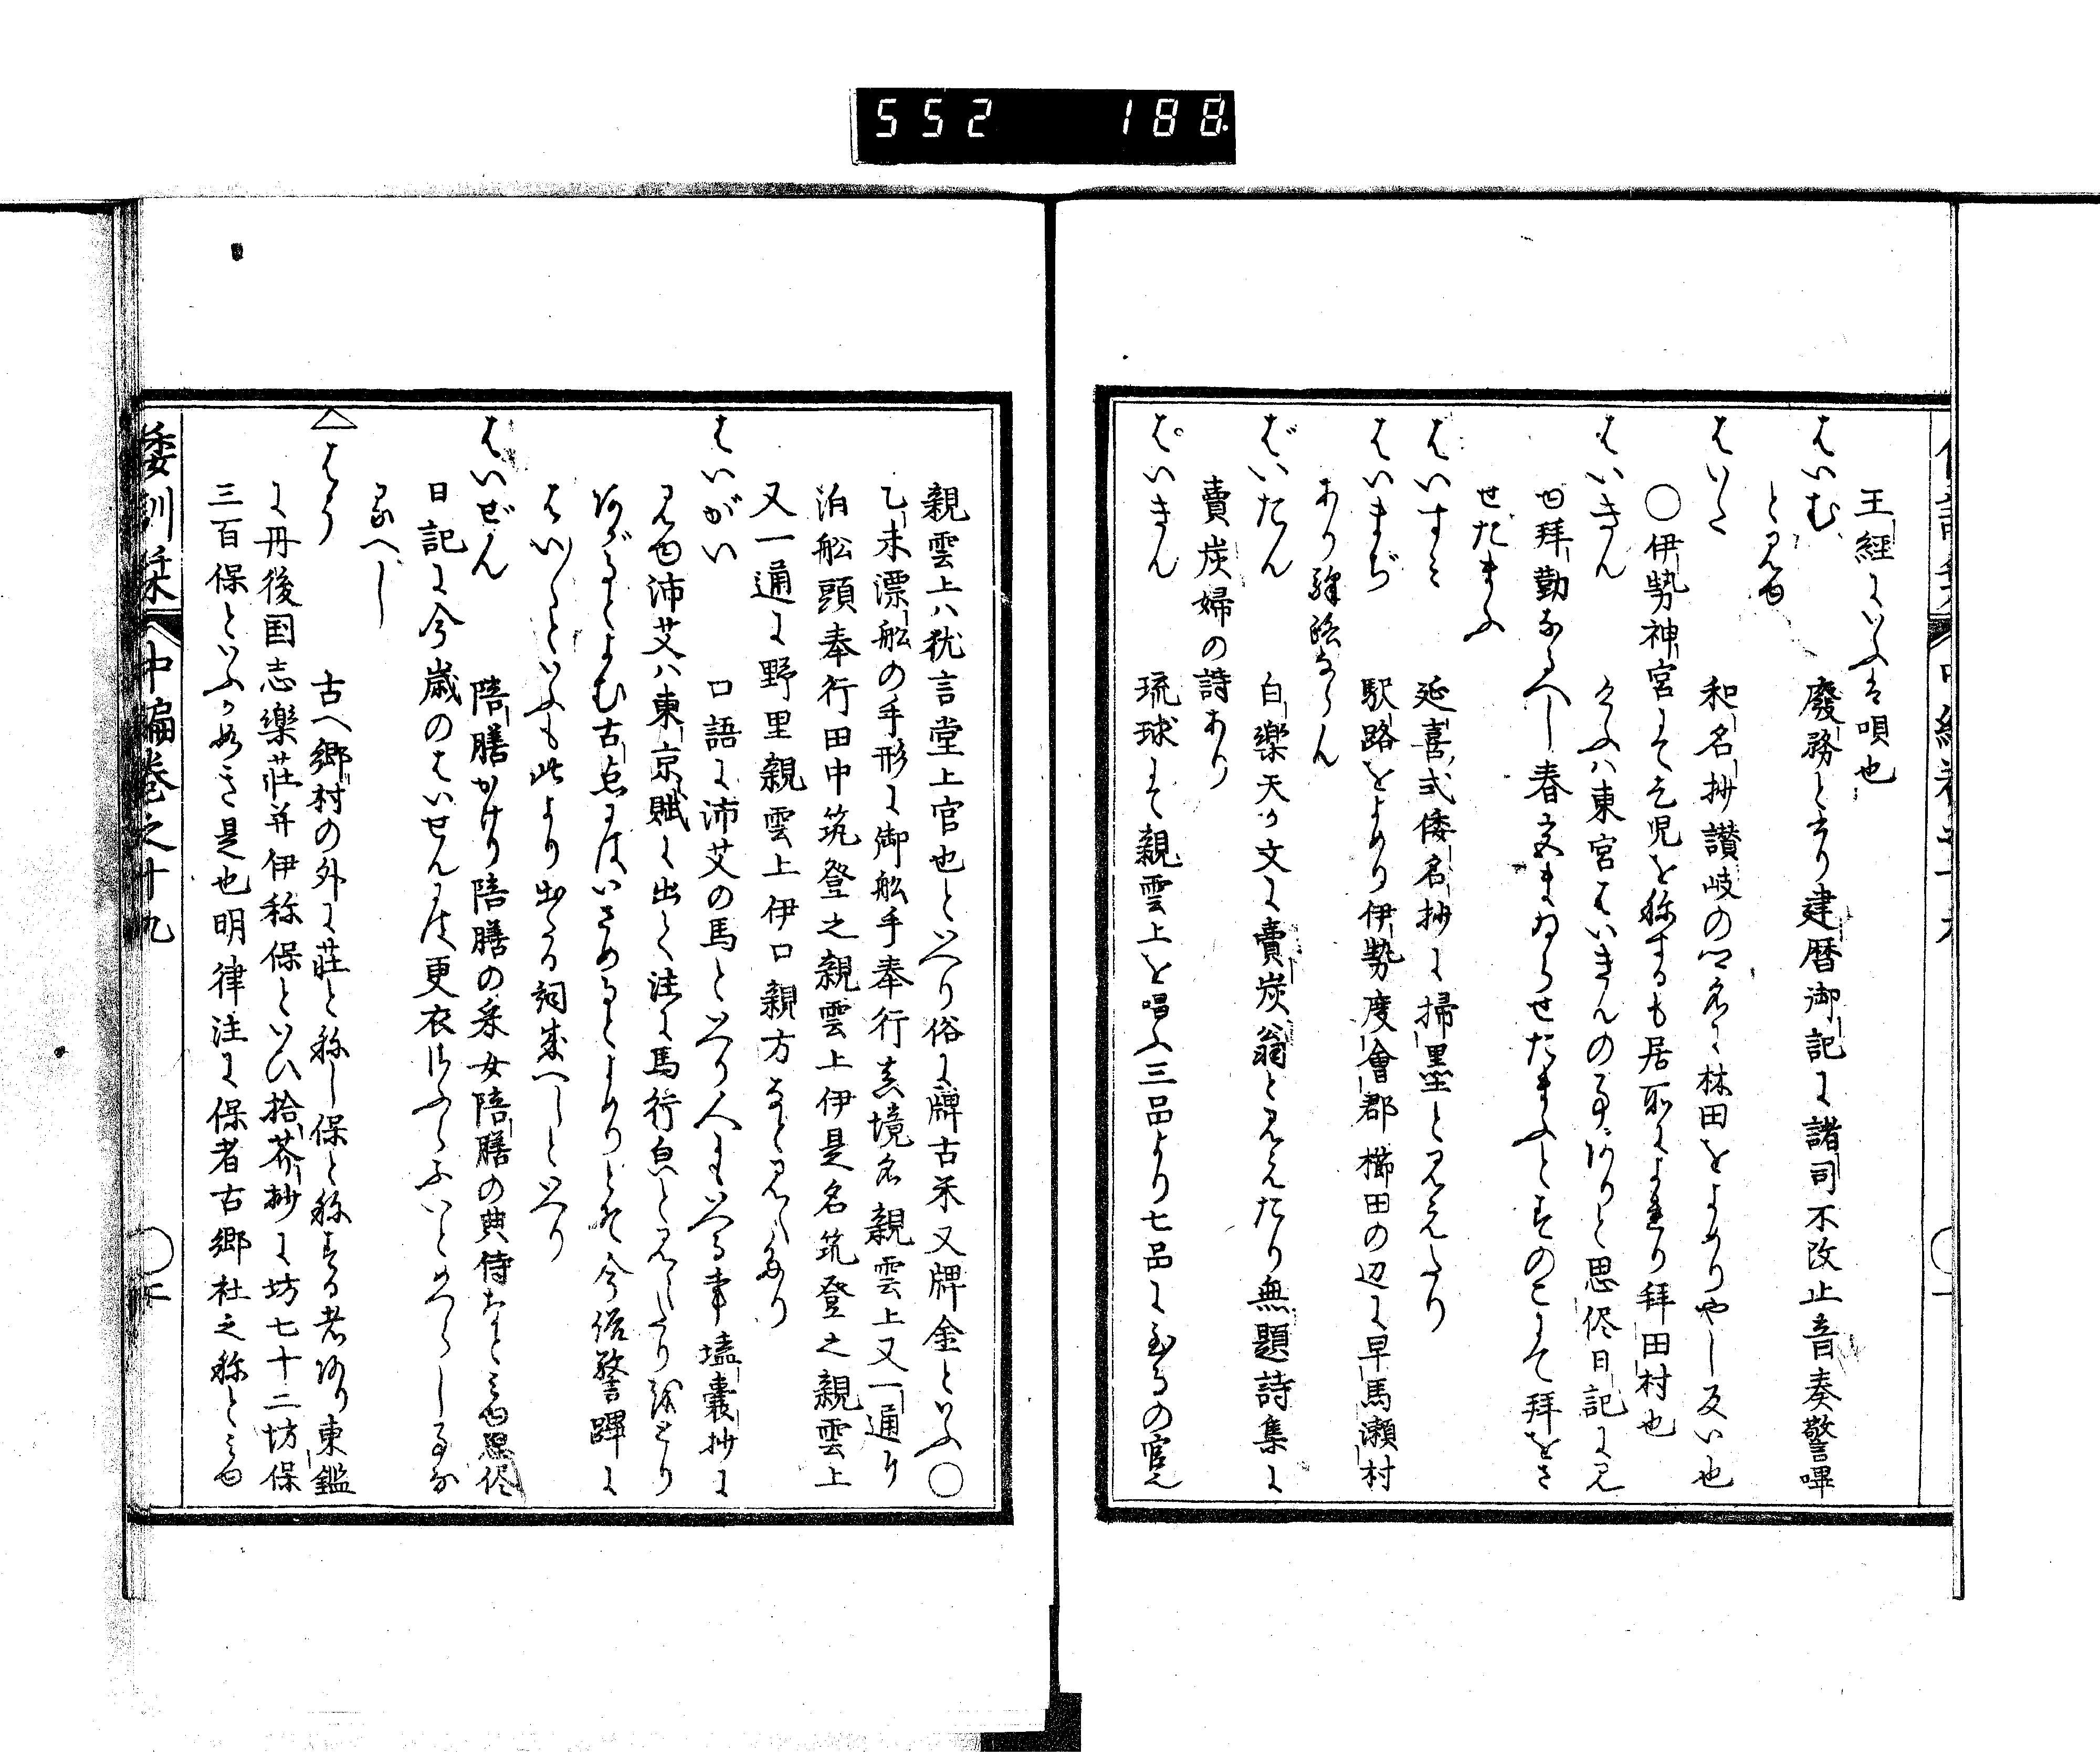 552 188
王經にいふは唄也
はいむ 廢務と書り建暦御記に諸司不改止音奏警嗶
と見ゆ
はいた 和名抄讃岐の郷名に林田をよめりやし反い也
○伊勢神宮にて乞児を称するも居所によれり拜田村也
はいきん くふハ東宮はいきんの事ありと思侭日記に見
ゆ拜勤なるへし春宮まゐらせたまふとものこして拜をさ
せたまふ
はいすみ 延喜式倭名抄に掃墨と見えたり
はいまぢ 駅路をよめり伊勢度會郡櫛田の辺に早馬瀬村
あり驛路ならん
ばいたん 白樂天か文に賣炭翁と見えたり無題詩集に
賣炭婦の詩あり
ぱいきん 琉球にて親雲上を唱ふ三品より七品に至るの官
親雲上ハ猶言堂上官也といへり俗に牌古米又牌金といふ○
乙未漂舩の手形に御舩手奉行眞境名親雲上又一通り
泊舩頭奉行田中筑登之親雲上伊是名筑登之親雲上
又一通に野里親雲上伊口親方なと見へたり
はいがい 口語に沛艾の馬といへり人にもいへる事壒囊抄に
見ゆ沛艾ハ東京賦に出て注に馬行皃と見えたり
あがるとよむ古点にはいさめるとよめりとそ今俗警蹕に
はい〱といふも此より出たる詞成へしといへり
はいぜん 陪膳かけり陪膳の采女陪膳の典侍なとみゆ思侭
日記に今歳のはいせんに更衣
るへし
△はう 古へ郷村の外に莊と称し保と称する者あり東鑑
に丹後国志樂莊并伊称保といひ拾芥抄に坊七十二坊保
三百保といふか如き是也明律注に保者古郷社之称とみゆ
倭訓栞 中編巻之十九 ○二